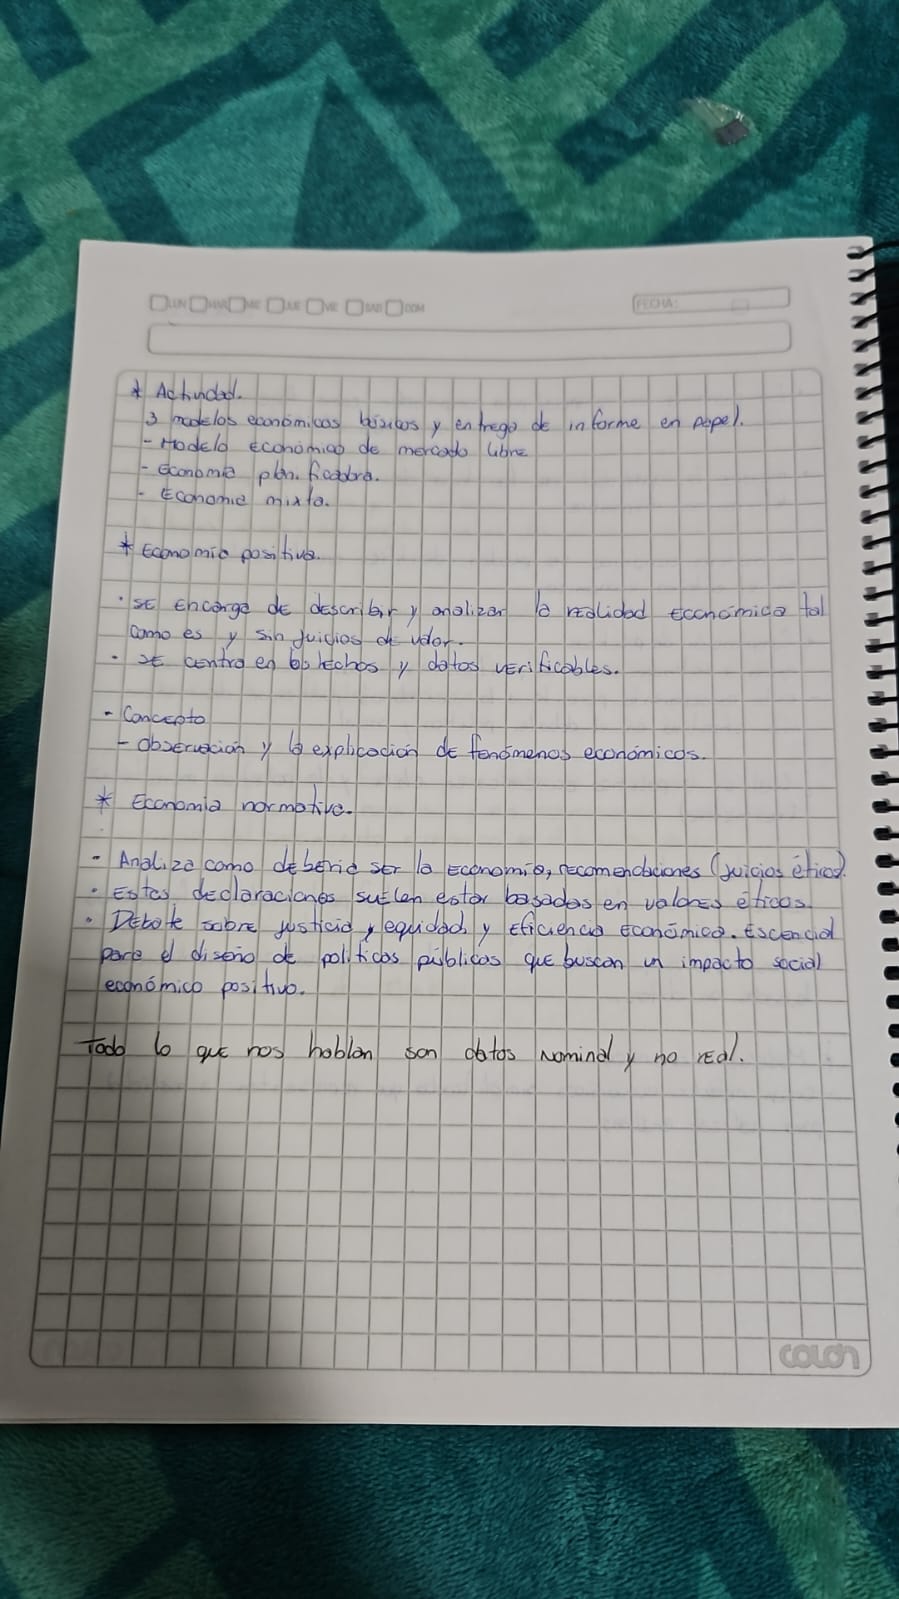 LUN MAR MIE JUE VIE SAB DOM
FECHA:
* Actividad.
3 modelos económicos básicos y entrega de informe en papel.
- Modelo económico de mercado libre
- Economía planificadora.
- Economia mixta.
* Economía positiva.
· SE encarga de describir y analizar la realidad económica tal
como es y sin juicios de valor.
· SE centra en los hechos y datos verificables.
- Concepto
- Observación y la explicación de fenómenos económicos.
* Economía normativa.
- Analiza como deberia ser la economía, recomendaciones (juicios éticos).
· Estas declaraciones suelen estar basadas en valores éticos.
· Debate sobre justicia y equidad y eficiencia económica. Escencial
para el diseño de políticas públicas que buscan un impacto social
económico positivo.
Todo lo que nos hablan son datos nominal y no real.
colon